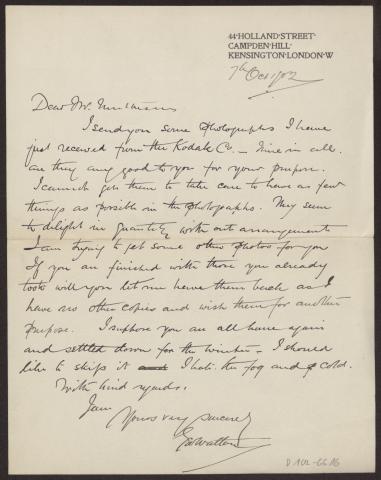 44·HOLLAND·STREET·
CAMPDEN·HILL·
KENSINGTON·LONDON·W
7th Oct 1902
Dear Mr.
I send you some Photographs I have
just received from the Kodak Co. — nine in all.
are they any good to you for your purpose.
I cannot get them to take care to have as few
things as possible in the Photographs. They seem
to delight in quantity with out arrangement
I am trying to get some other Photos for you
If you are finished with those you already
took will you let me have them back as I
have no other copies and wish them for another
purpose. I suppose you are all home again
and settled down for the winter, I should
like to skip it I hate the fog and cold.
With kind regards.
I am
Yours very sincerely
Walton